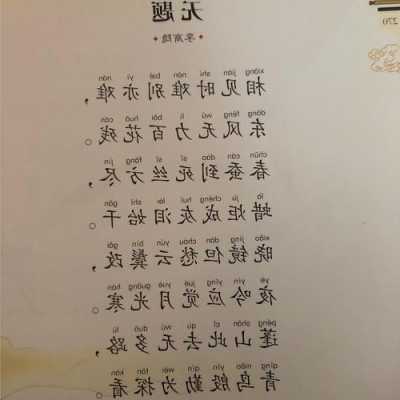 无题
李商隐
xiāng jiàn shí nán bié yì nán
相见时难别亦难，
dōng fēng wú lì bǎi huā cán
东风无力百花残。
chūn cán dào sǐ sī fāng jìn
春蚕到死丝方尽，
là jù chéng huī lèi shǐ gān
蜡炬成灰泪始干。
xiǎo jìng dàn chóu yún bìn gǎi
晓镜但愁云鬓改，
yè yín yīng jué yuè guāng hán
夜吟应觉月光寒。
péng shān cǐ qù wú duō lù
蓬山此去无多路，
qīng niǎo yīn qín wèi tàn kān
青鸟殷勤为探看